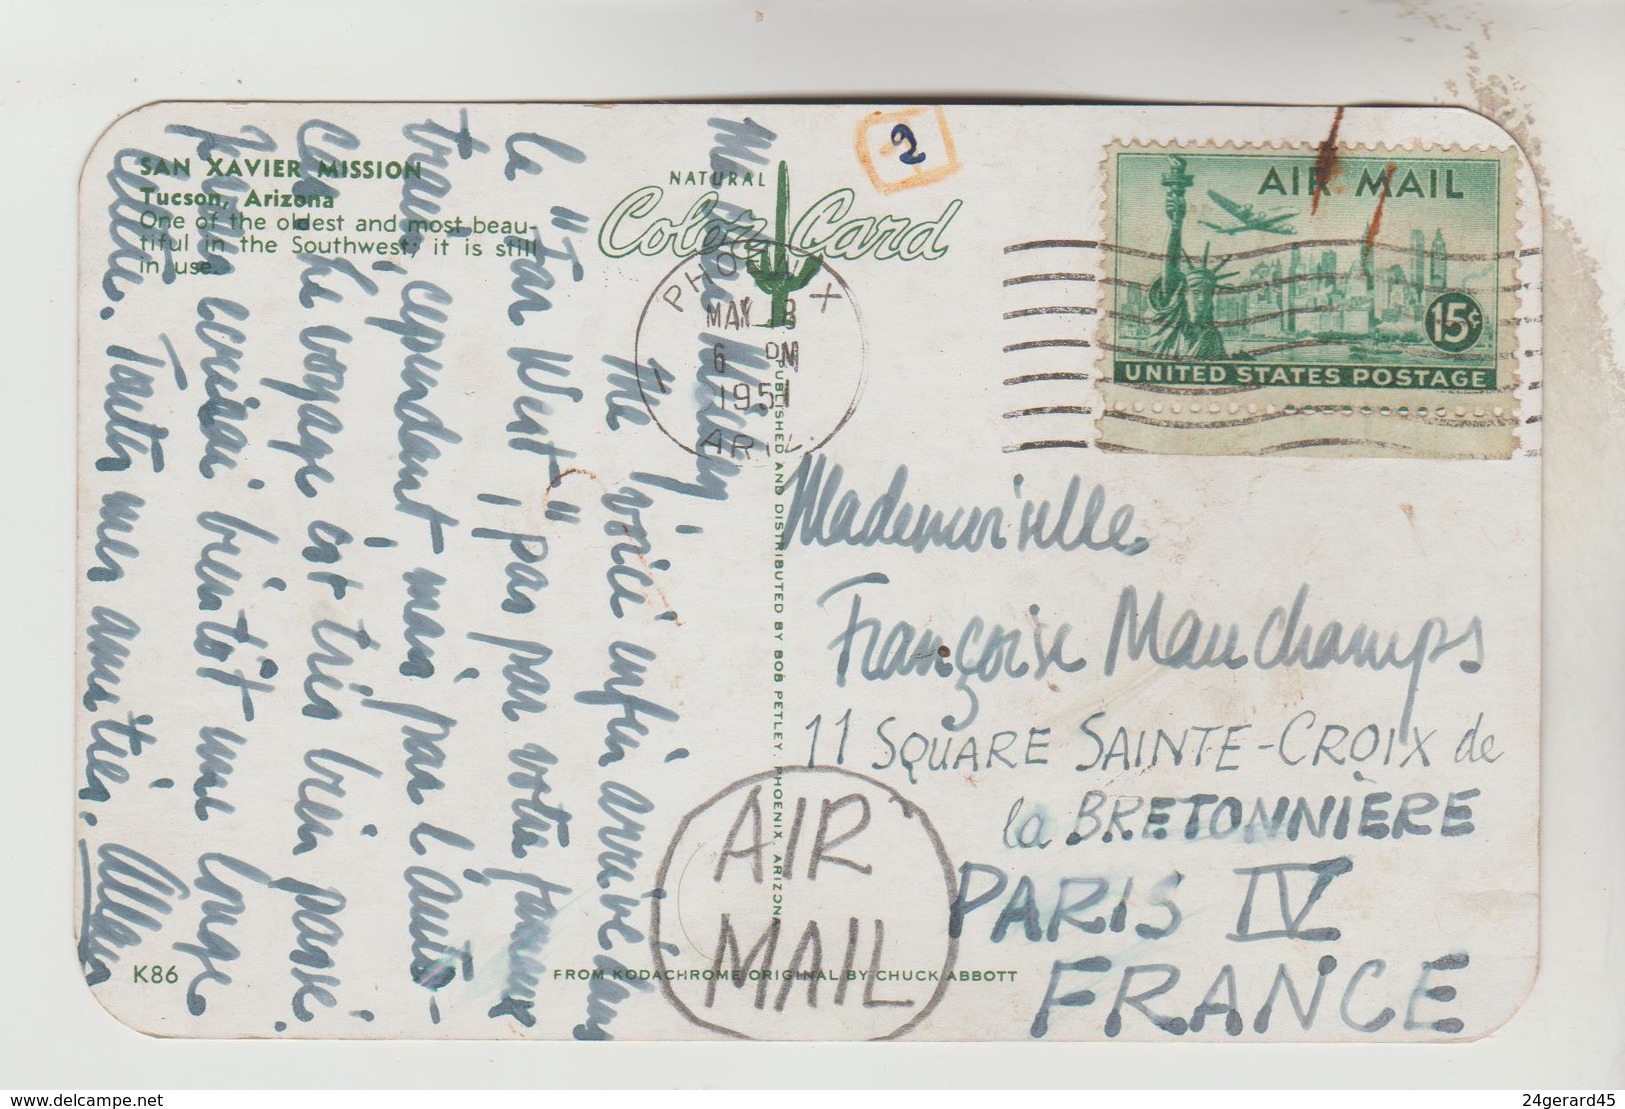 SAN XAVIER MISSION
Tucson, Arizona
One of the oldest and most beau-
tiful in the Southwest; it is still
in use.
NATURAL
Color Card
2
AIR MAIL
15¢
UNITED STATES POSTAGE
PHOENIX
MAY 8
6 PM
1951
ARIZ.
Me voici enfin arrivé dans
le "Far West", pas par votre fameux
train cependant mais par l'auto-
Car. Le voyage s'est très bien passé.
bientôt une longue
lettre. Toutes mes amitiés. Alain
PUBLISHED AND DISTRIBUTED BY BOB PETLEY, PHOENIX, ARIZONA
Mademoiselle
Françoise Mauchamps
11 SQUARE SAINTE-CROIX de
la BRETONNIÈRE
PARIS IV
FRANCE
AIR
MAIL
K86
FROM KODACHROME ORIGINAL BY CHUCK ABBOTT
24gerard45
delcampe.net